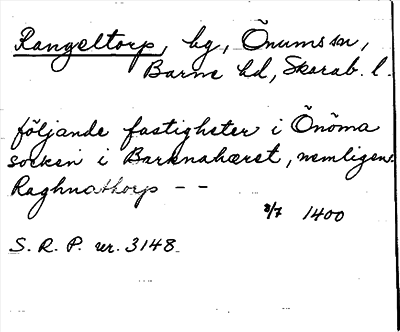 Rangeltorp, by, Önums sn,
Barne hd, Skarab. l.
följande fastigheter i Önöma
socken i Barknahæret, nemligen
Raghnathorp - -
8/7 1400
S. R. P. nr. 3148.